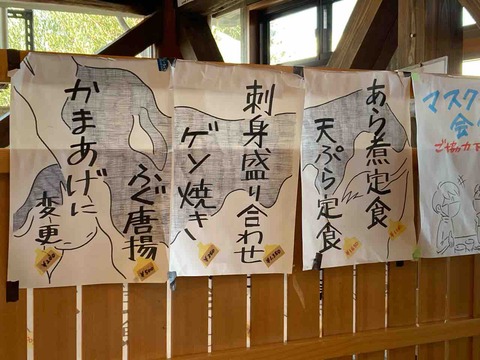 あら煮定食
天ぷら定食
刺身盛り合わせ
ゲソ焼き
ふぐ唐揚
かまあげに
変更
マスク
会
ご協力下